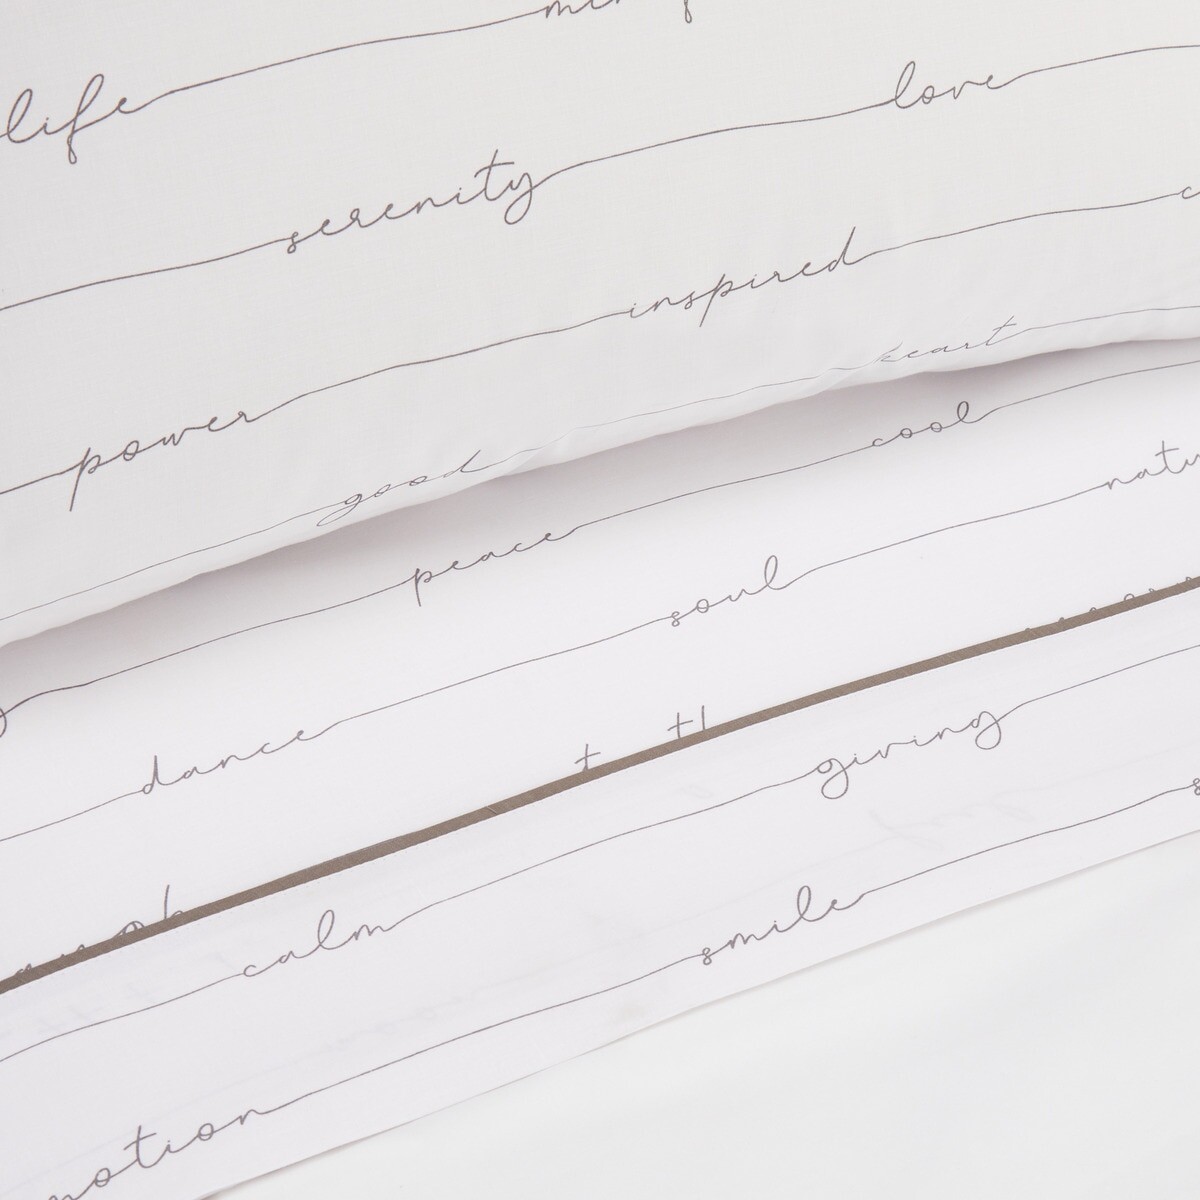 life
serenity love
power inspired
good heart
peace cool
dance soul
calm giving
smile